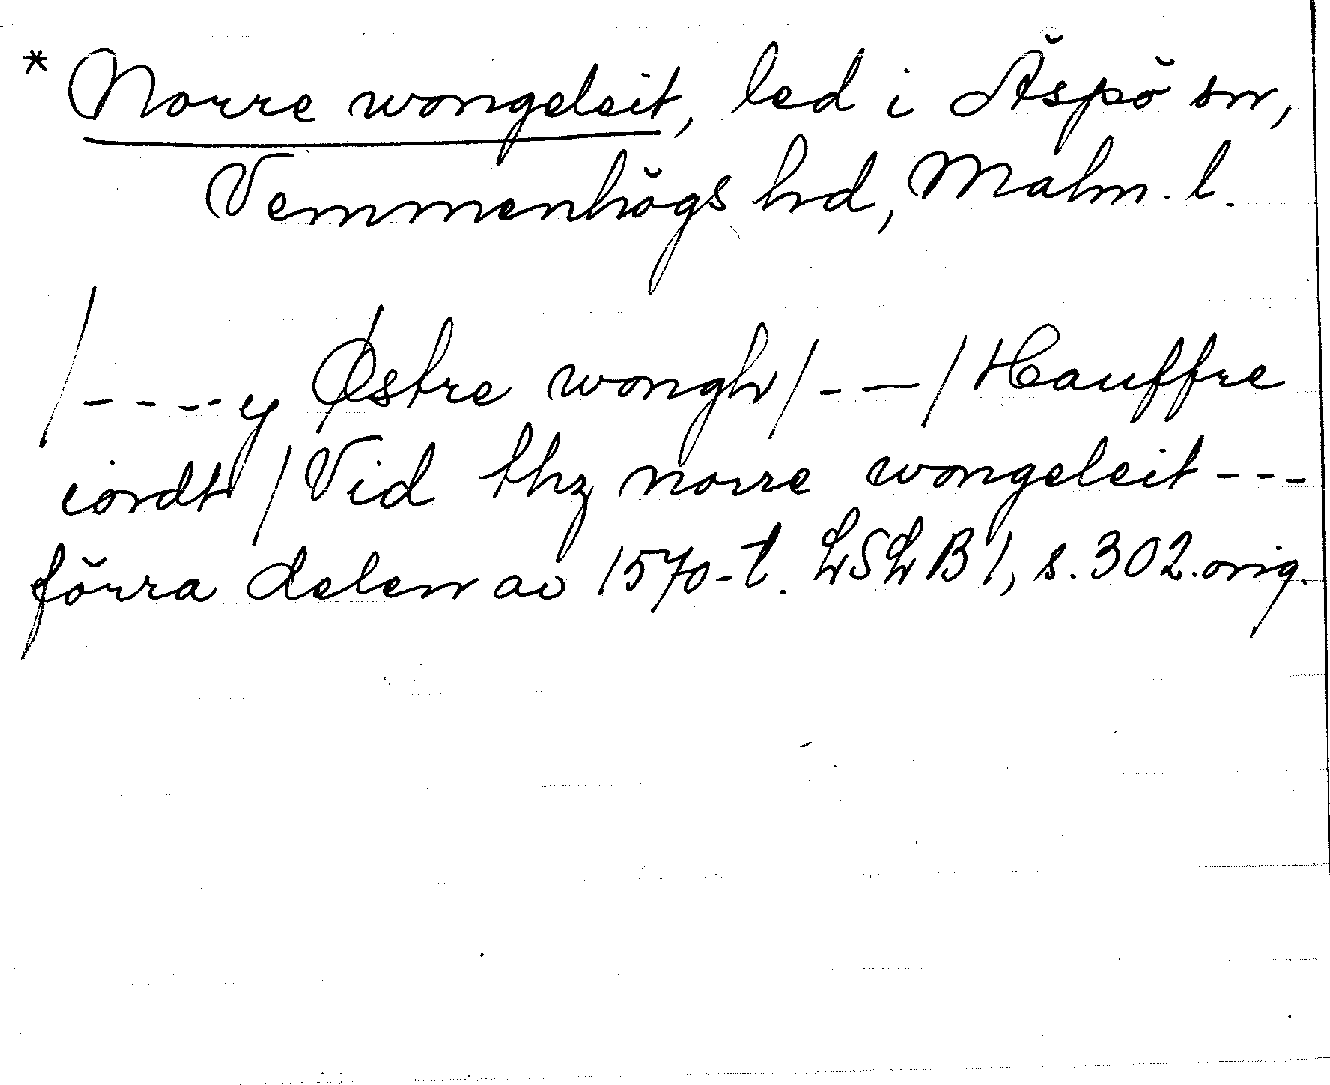 * Norre wongeleit, led i Äspö sn,
Vemmenhögs hd, Malm. l.
/----y Østre wongh/-—/Hauffre
iordt/Vid thz norre wongeleit---
förra delen av 1570-t. LSLB 1, s. 302. orig.